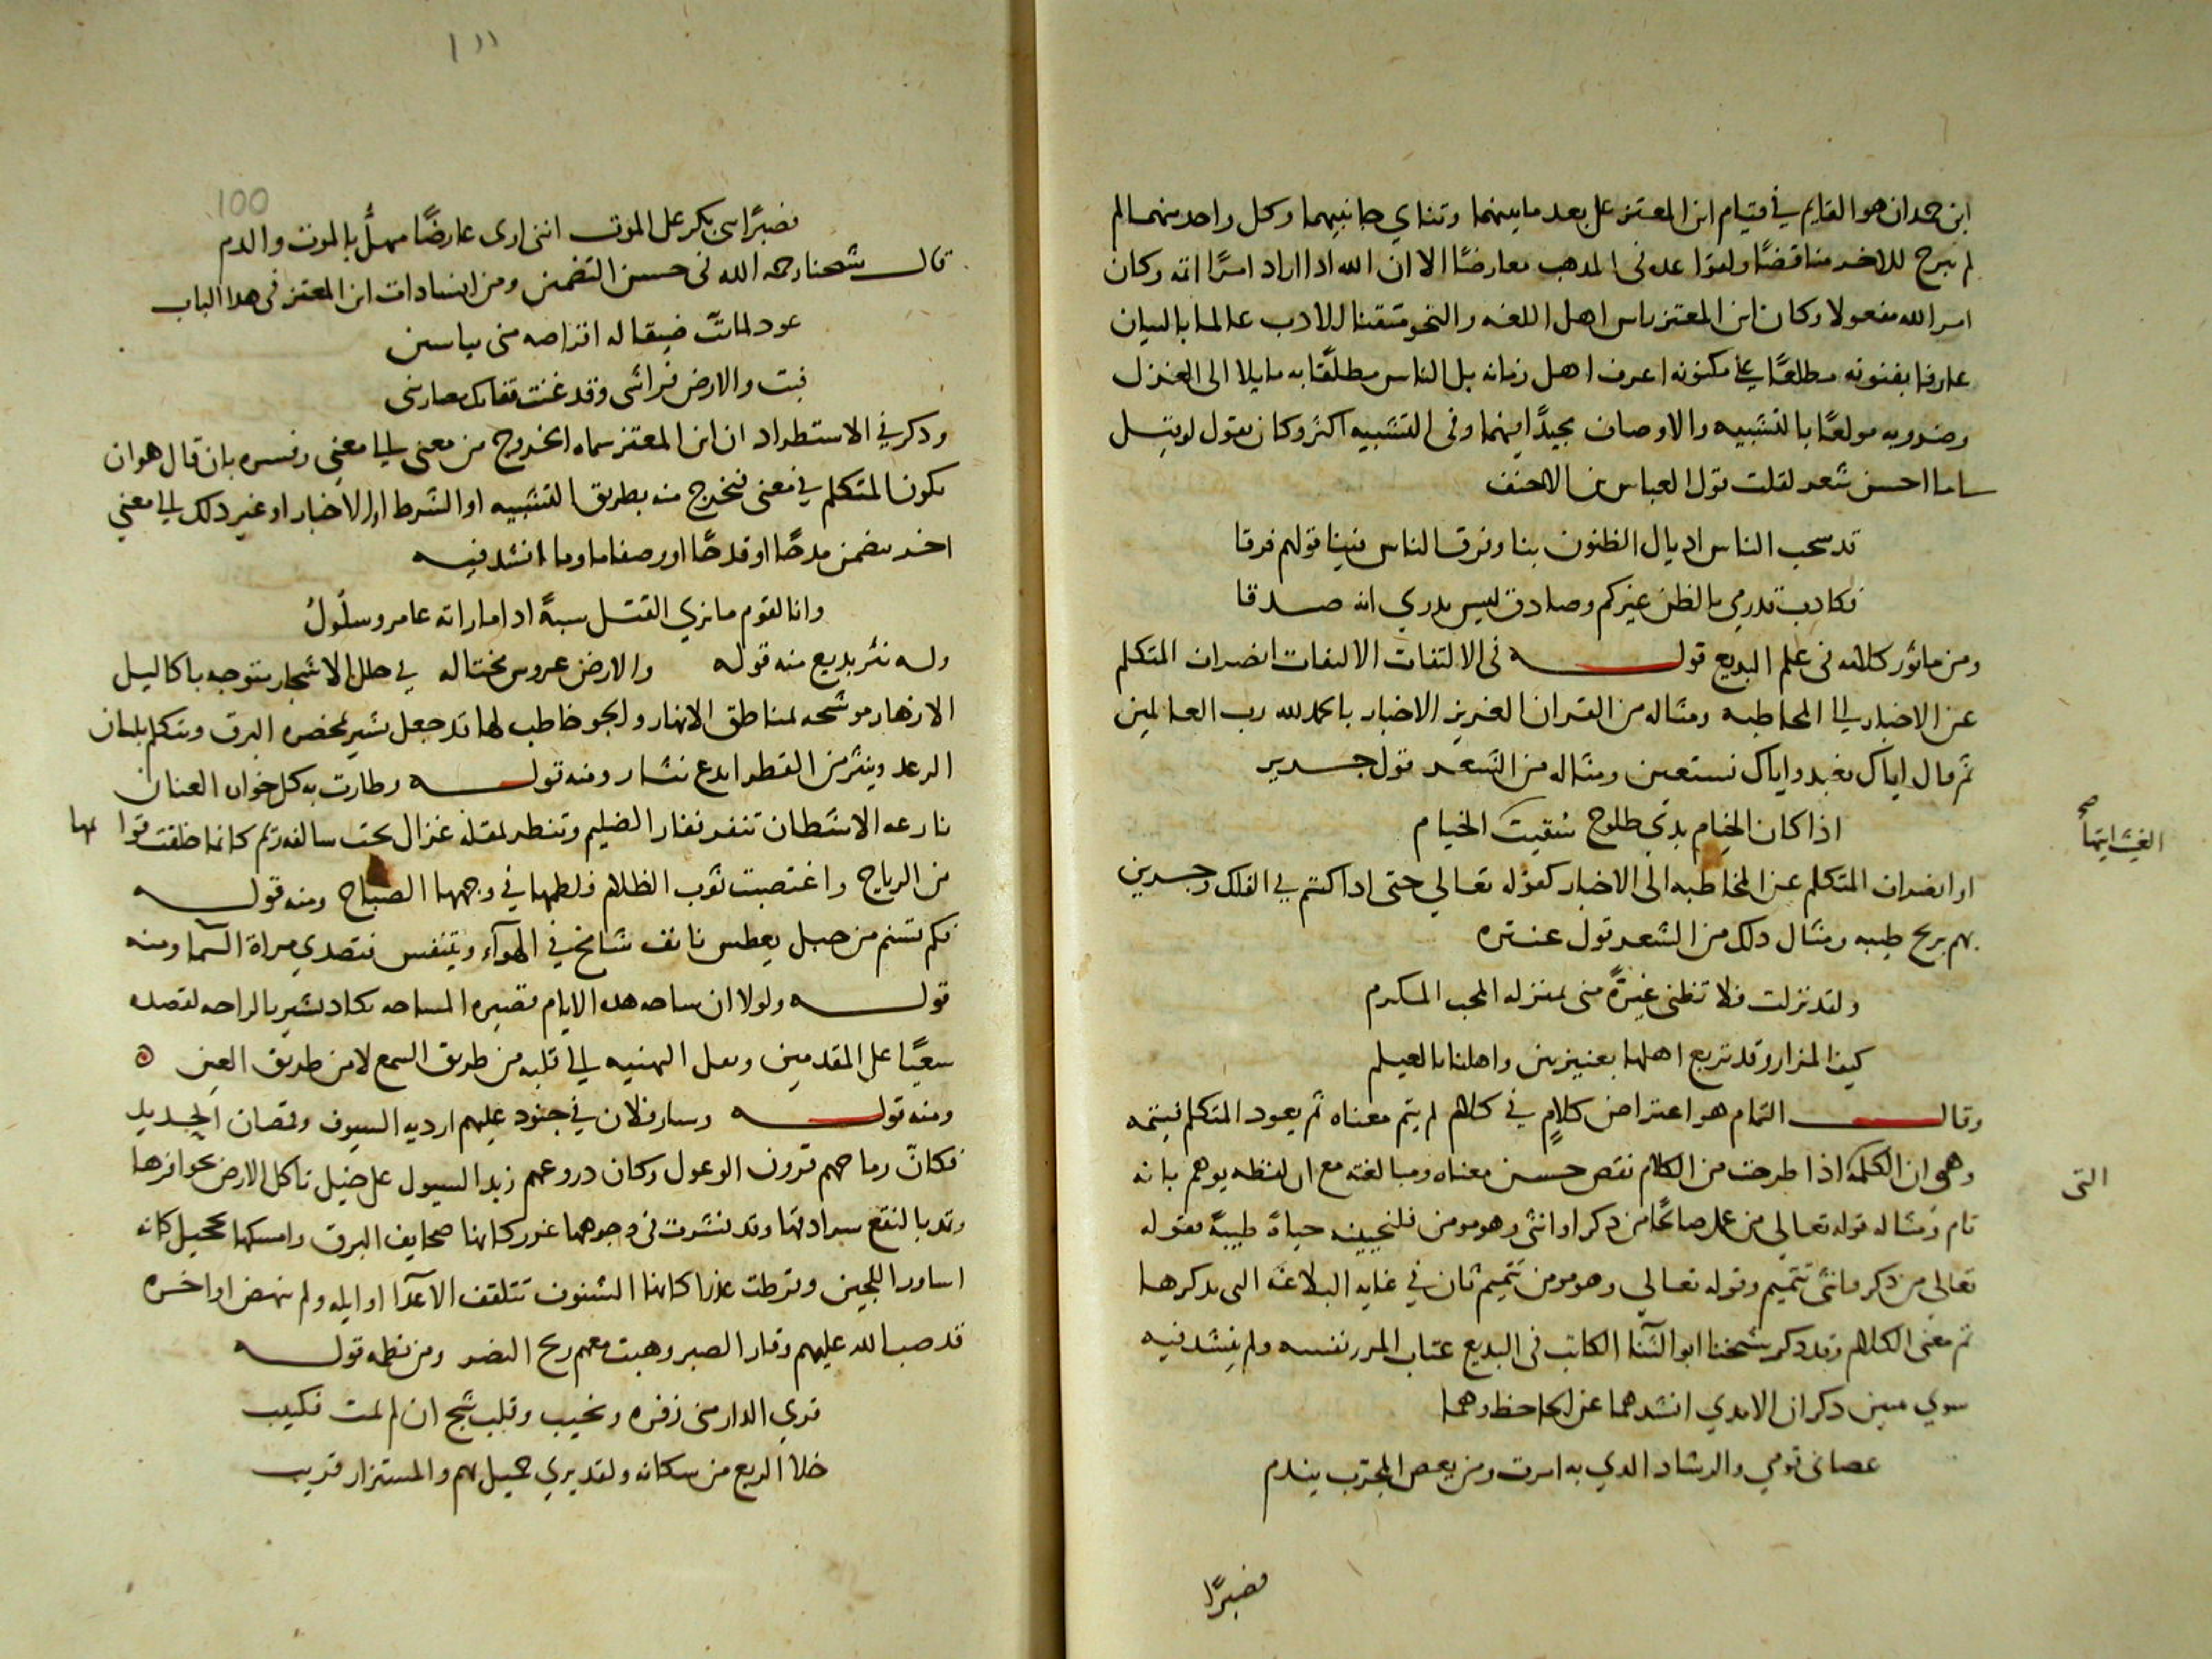 ابن حمدان هو القايم في قيام ابن المعتز على بعد ما بينهما وتناي جانبيهما وكل واحد منهما لم
لم يبرح للاخر مناقضًا ولقواعده في المدهب معارضًا الا ان الله ادا اراد امرًا اتمه وكان
امر الله مفعولا وكان ابن المعتز راس اهل اللغه والنحو متقنا للادب عالما بالبيان
عارفا بفنونه مطلعًا على مكنونه اعرف اهل زمانه بل الناس مطلقًا به مايلا الى الغزل
وضروبه مولعًا بالتشبيه والاوصاف مجيدًا فيهما وفى التشبيه اكثر وكان يقول لو قيل
ساما احسن شعر لقلت قول العباس بن الاحنف
قد سحب الناس اديال الظنون بنا وفرق الناس فينا قولهم فرقا
فكادب قد رمي بالظن غيركم وصادق ليس يدري انه صدقا
ومن ماثور كلامه فى علم البديع قوله فى الالتفات الالتفات انصراف المتكلم
عن الاخبار الى المخاطبه ومثاله من القران العزيز الاخبار بالحمد لله رب العالمين
ثم قال اياك نعبد واياك نستعين ومثاله من الشعر قول جرير
اذا كان الخيام بذي طلوح سقيت الخيام
الغيث ايتها صح
او انصراف المتكلم عن المخاطبه الى الاخبار كقوله تعالي حتى اذا كنتم في الفلك وجرين
بهم بريح طيبه ومثال دلك من الشعر قول عنتره
ولقد نزلت فلا تظني غيرهُ مني بمنزله المحب المكرم
كيف المزار وقد تربع اهلها بعنيزتين واهلنا بالغيلم
وقال التمام هو اعتراض كلامٍ في كلام لم يتم معناه ثم يعود المتكلم فيتمه
وهى ان الكلمه اذا طرحت من الكلام نقص حسن معناه ومبالغته مع ان لفظه يوهم بانه
التى
تام ومثاله قوله تعالى من عمل صالحًا من ذكر او انثى وهو مومن فلنحيينه حياةً طيبةً فقوله
تعالى من ذكر وانثى تتميم وقوله تعالي وهو مومن تتميم ثان في غايه البلاغه التى بدكرها
تم معنى الكلام وقد دكر شيخنا ابو الثنا الكاتب فى البديع عتاب المرء نفسه ولم ينشد فيه
سوي بيتين دكر ان الامدي انشدهما عن الجاحظ وهما
عصانى قومي والرشاد الدي به امرت ومن يعص المجرّب يندم
فصبرًا
١١
100
فصبرًا بنى بكر على الموت اننى ارى عارضًا ينهلُّ بالموت والدم
قال شيخنا رحمه الله فى حسن التضمين ومن انشادات ابن المعتز فى هدا الباب
عود لما بتّ ضيفا له اقراصه منى بياسين
فبت والارض فراشى وقد غنت قفا نبك مصارينى
ودكر في الاستطراد ان ابن المعتز سماه الخروج من معنى الى معني وفسره بان قال هو ان
يكون المتكلم في معنى فيخرج منه بطريق التشبيه او الشرط او الاخبار او غير دلك الى معني
اخر يضمن مدحًا او قدحًا او وصفا ما وما انشد فيه
وانا لقوم ما نري القتل سبةً ادا ما راته عامر وسلولُ
وله نثر بديع منه قوله والارض عروس مختاله في حلل الاشجار متوجه باكاليل
الازهار موشحه بمناطق الانهار والجو خاطب لها قد جعل يشير بمخصره البرق ويتكلم بلسان
الرعد وينثر من القطر ابدع نثار ومنه قوله وطارت به كل خوار العنان
نازعه الاشطان تنفر نفار الظليم وتنظر بمقله غزال تحت سالفه ريم كانما خلقت قوايمها
من الرياح واغتصبت ثوب الظلام فلطمها في وجهها الصباح ومنه قوله
فكم تسنم من جبل يعطس بانف شامخ في الهوآء ويتنفس فتصدي مراة السما ومنه
قوله ولولا ان مساحه هده الايام قصيره المساحه يكاد يشير بالراحه لقصده
سعيًا على المقدمين ونقل التهنيه الى قلبه من طريق السمع لا من طريق العين
ومنه قوله وسار فلان في جنود عليهم ارديه السيوف وقمصان الحديد
فكانّ رماحهم قرون الوعول وكان دروعهم زبد السيول على خيل تاكل الارض بحوافرها
وتمد بالنقع سرادقها وقد نشرت فى وجوهها غرر كانها صحايف البرق وامسكها تحجيل كانه
اساور اللجين وقرطت عذرا كانها الشنوف تتلقف الاعدآ اوايله ولم ينهض اواخره
قد صب الله عليهم وقار الصبر وهبت معهم ريح النصر ومن نظمه قوله
تري الدار منى زفره ونحيب وقلب شج ان لم يمت فكييب
خلا الربع من سكانه ولقد يري جميل بهم والمستزار قريب